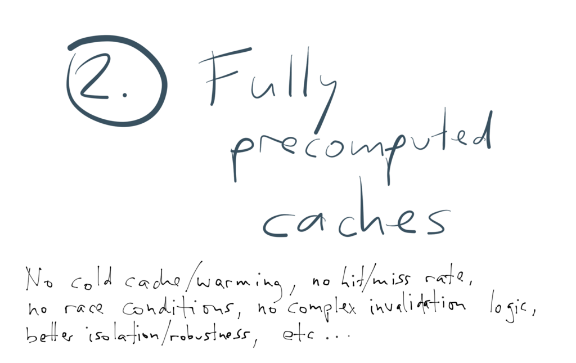 2. Fully
precomputed
caches
No cold cache/warming, no hit/miss rate,
no race conditions, no complex invalidation logic,
better isolation/robustness, etc...